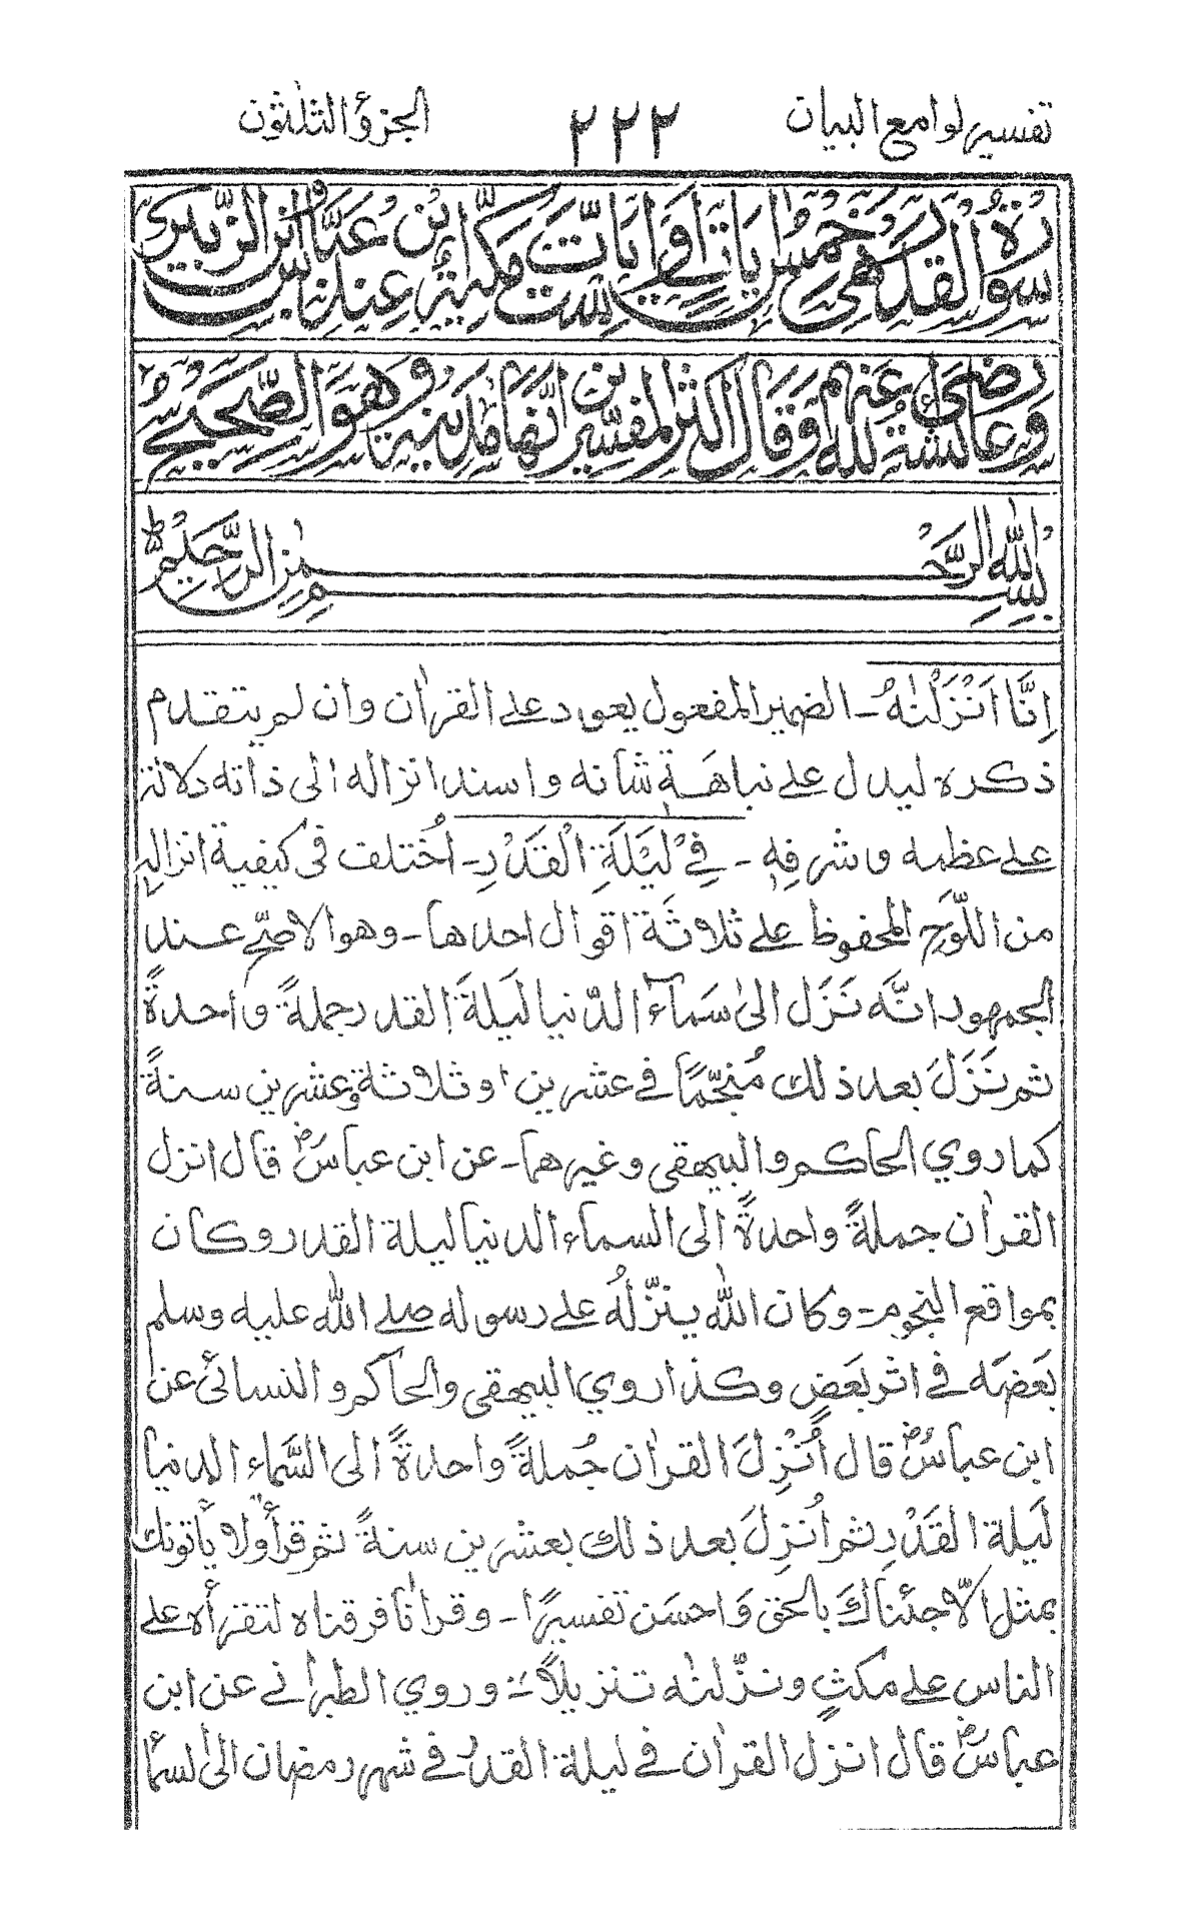 تفسير لوامع البيان ٢٢٢ الجزؤ الثلثون
سُوْرَةُ الْقَدْرِ وَهِيَ خَمْسُ اٰيَاتٍ اَوْ سِتُّ اٰيَاتٍ مَكِّيَّةٌ عِنْدَ ابْنِ عَبَّاسٍ وَابْنِ الزُّبَيْرِ
وَعَائِشَةَ رَضِيَ اللهُ عَنْهُمْ وَقَالَ اَكْثَرُ الْمُفَسِّرِيْنَ اَنَّهَا مَدَنِيَّةٌ وَهُوَ الصَّحِيْحُ
بِسْمِ اللهِ الرَّحْمٰنِ الرَّحِيْمِ
اِنَّا اَنْزَلْنٰهُ - الضمير المفعول يعود على القراٰن وان لم يتقدم
ذكره ليدل على نباهة شانه واسند انزاله الى ذاته دلالة
على عظمه وشرفه - فِيْ لَيْلَةِ الْقَدْرِ - اُختلف فى كيفية انزاله
من اللّوح المحفوظ على ثلاثة اقوال احدها - وهو الاصحّ عند
الجمهور انّه نَزَل الىٰ سَماَءِ الدّنيا لَيلةَ القدر جملةً واحدةً
ثم نَزَلَ بعد ذلك مُنجّمًا في عشرين او ثلاثة وعشرين سنةً
كما روي الحاكم والبيهقى وغيرهما - عن ابن عباسؓ قال انزل
القراٰن جملةً واحدةً الى السماء الدنيا ليلة القدر وكان
بمواقع النجوم - وكان اللّٰه ينزّلُه على رسوله صلى اللّٰه عليه وسلم
بَعضَه في اثر بَعضٍ وكذا روي البيهقى والحاكم والنسائى عن
ابن عباسؓ قال اُنْزِلَ القراٰن جُملةً واحدةً الى السَّماء الدنيا
لَيلة القَدْرِ ثم اُنزِلَ بعد ذلك بعشرين سنةً ثم قرأ ولا يأتونك
بمثل الّا جئناكَ بالحق وَاحسَن تفسيرًا - وقراٰنا فرقناه لتقرأه على
الناس على مكثٍ ونزّلنٰه تنزيلاً - وروي الطبرانى عن ابن
عباسؓ قال انزل القراٰن في ليلة القدر في شهر رمضان الىٰ لسماٴ